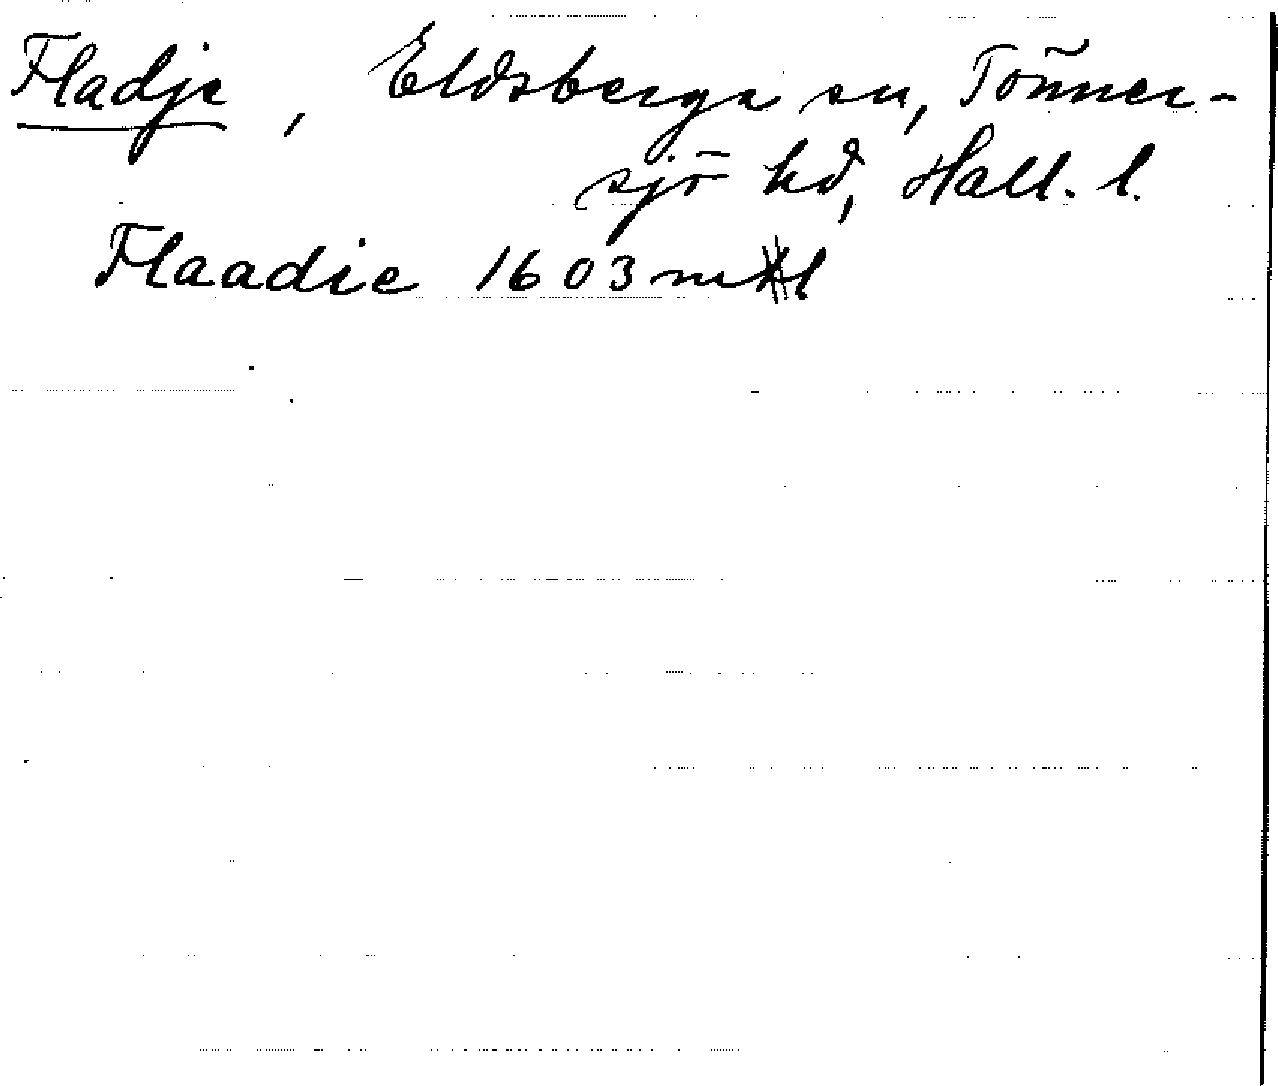 Fladje, Eldsberga sn, Tönner-
sjö hd, Hall. l.
Flaadie 1603